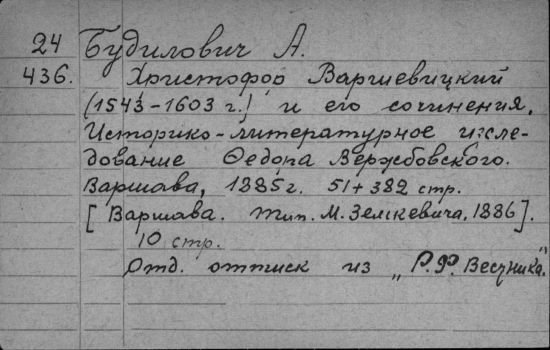 24 Будилович А.
436. Христофор Варшевицкий
(1543-1603 г.) и его сочинения.
Историко-литературное иссле-
дование Федора Вержбовского.
Варшава, 1885 г. 51+382 стр.
[Варшава. Тип. М. Земкевича, 1886].
10 стр.
Отд. оттиск из „Р. Ф. Вестника."